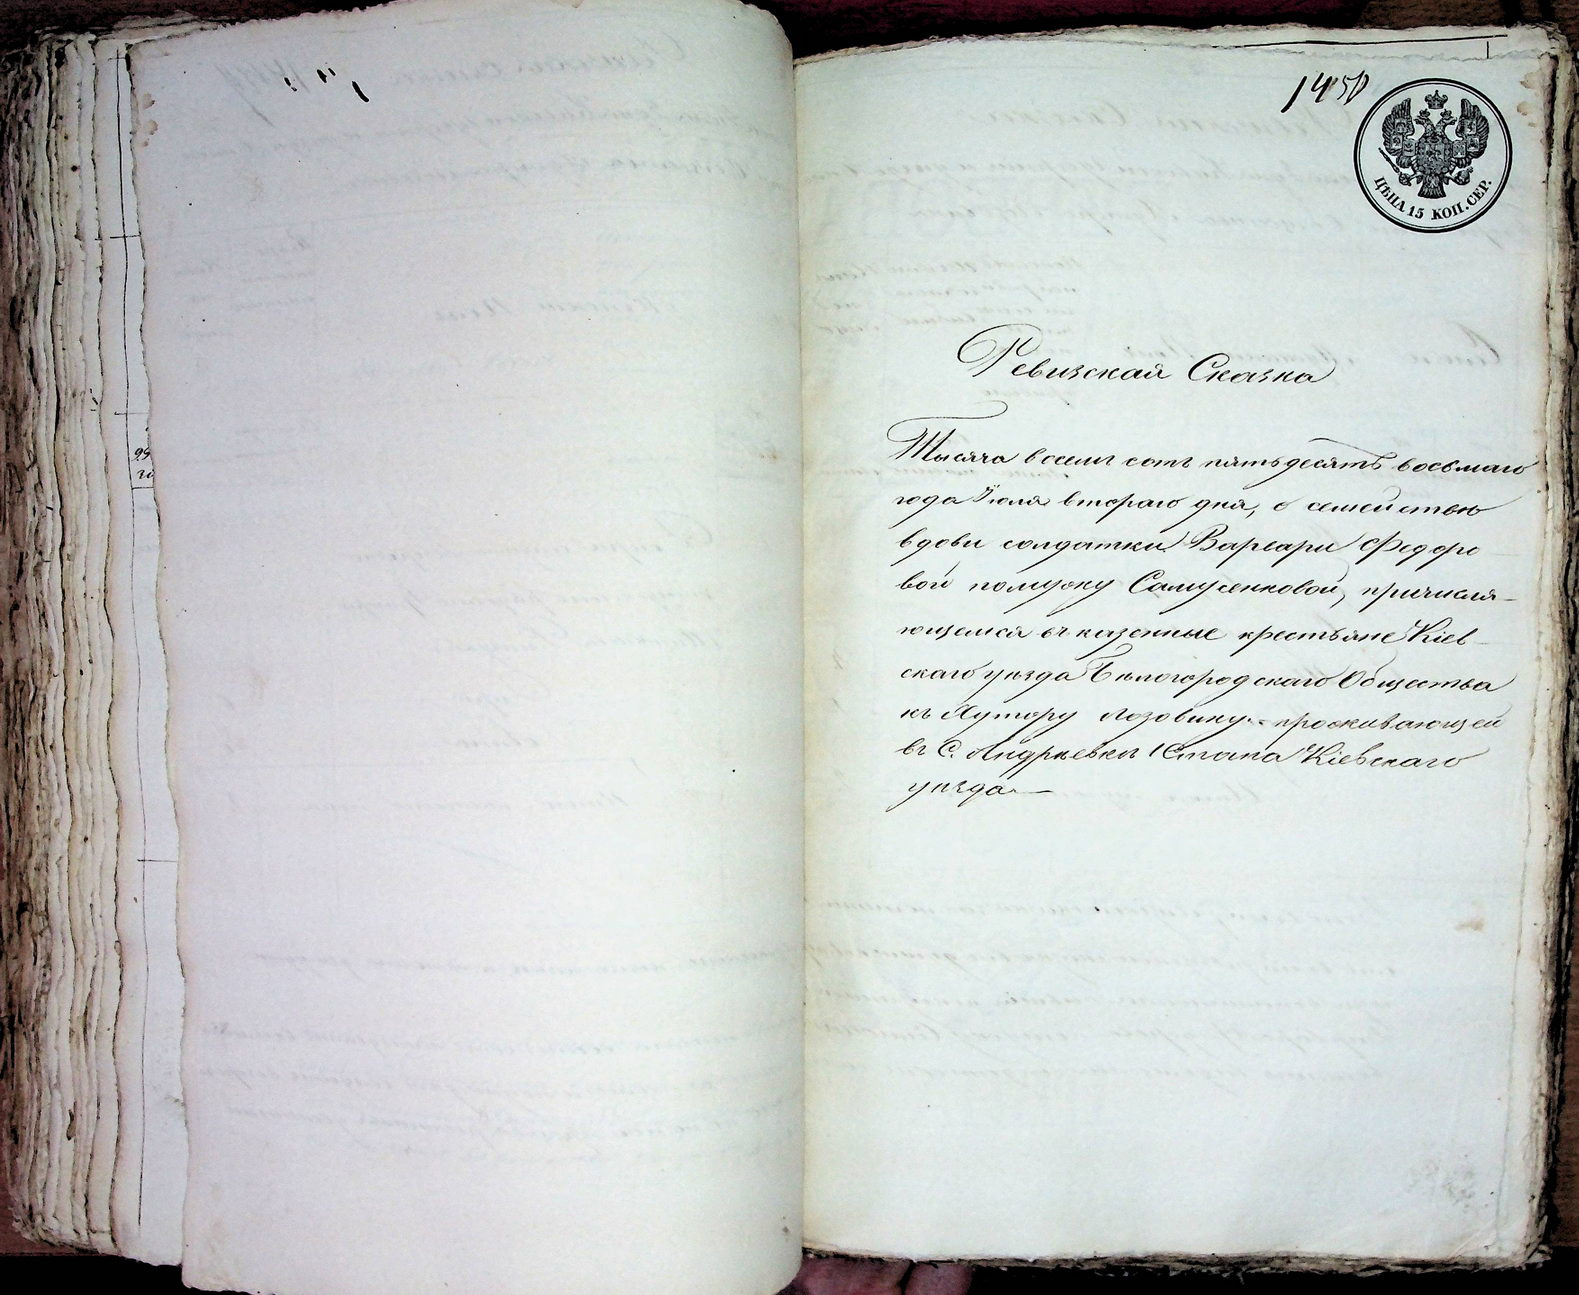 1450
ЦѢНА 15 КОП. СЕР.
Ревизская Сказка
Тысяча восемь сотъ пятьдесятъ восьмаго
года Іюля втораго дня, о семействѣ
вдови солдатки Варвари Федоро
вой по мужу Самусенковой, причисля-
ющемся въ казенные крестьяне Кіев
скаго уѣзда Бѣлогородскаго Общества
къ Хутору Лозовику проживающей
въ С. Андрѣевкѣ 1 Стана Кіевскаго
уѣзда